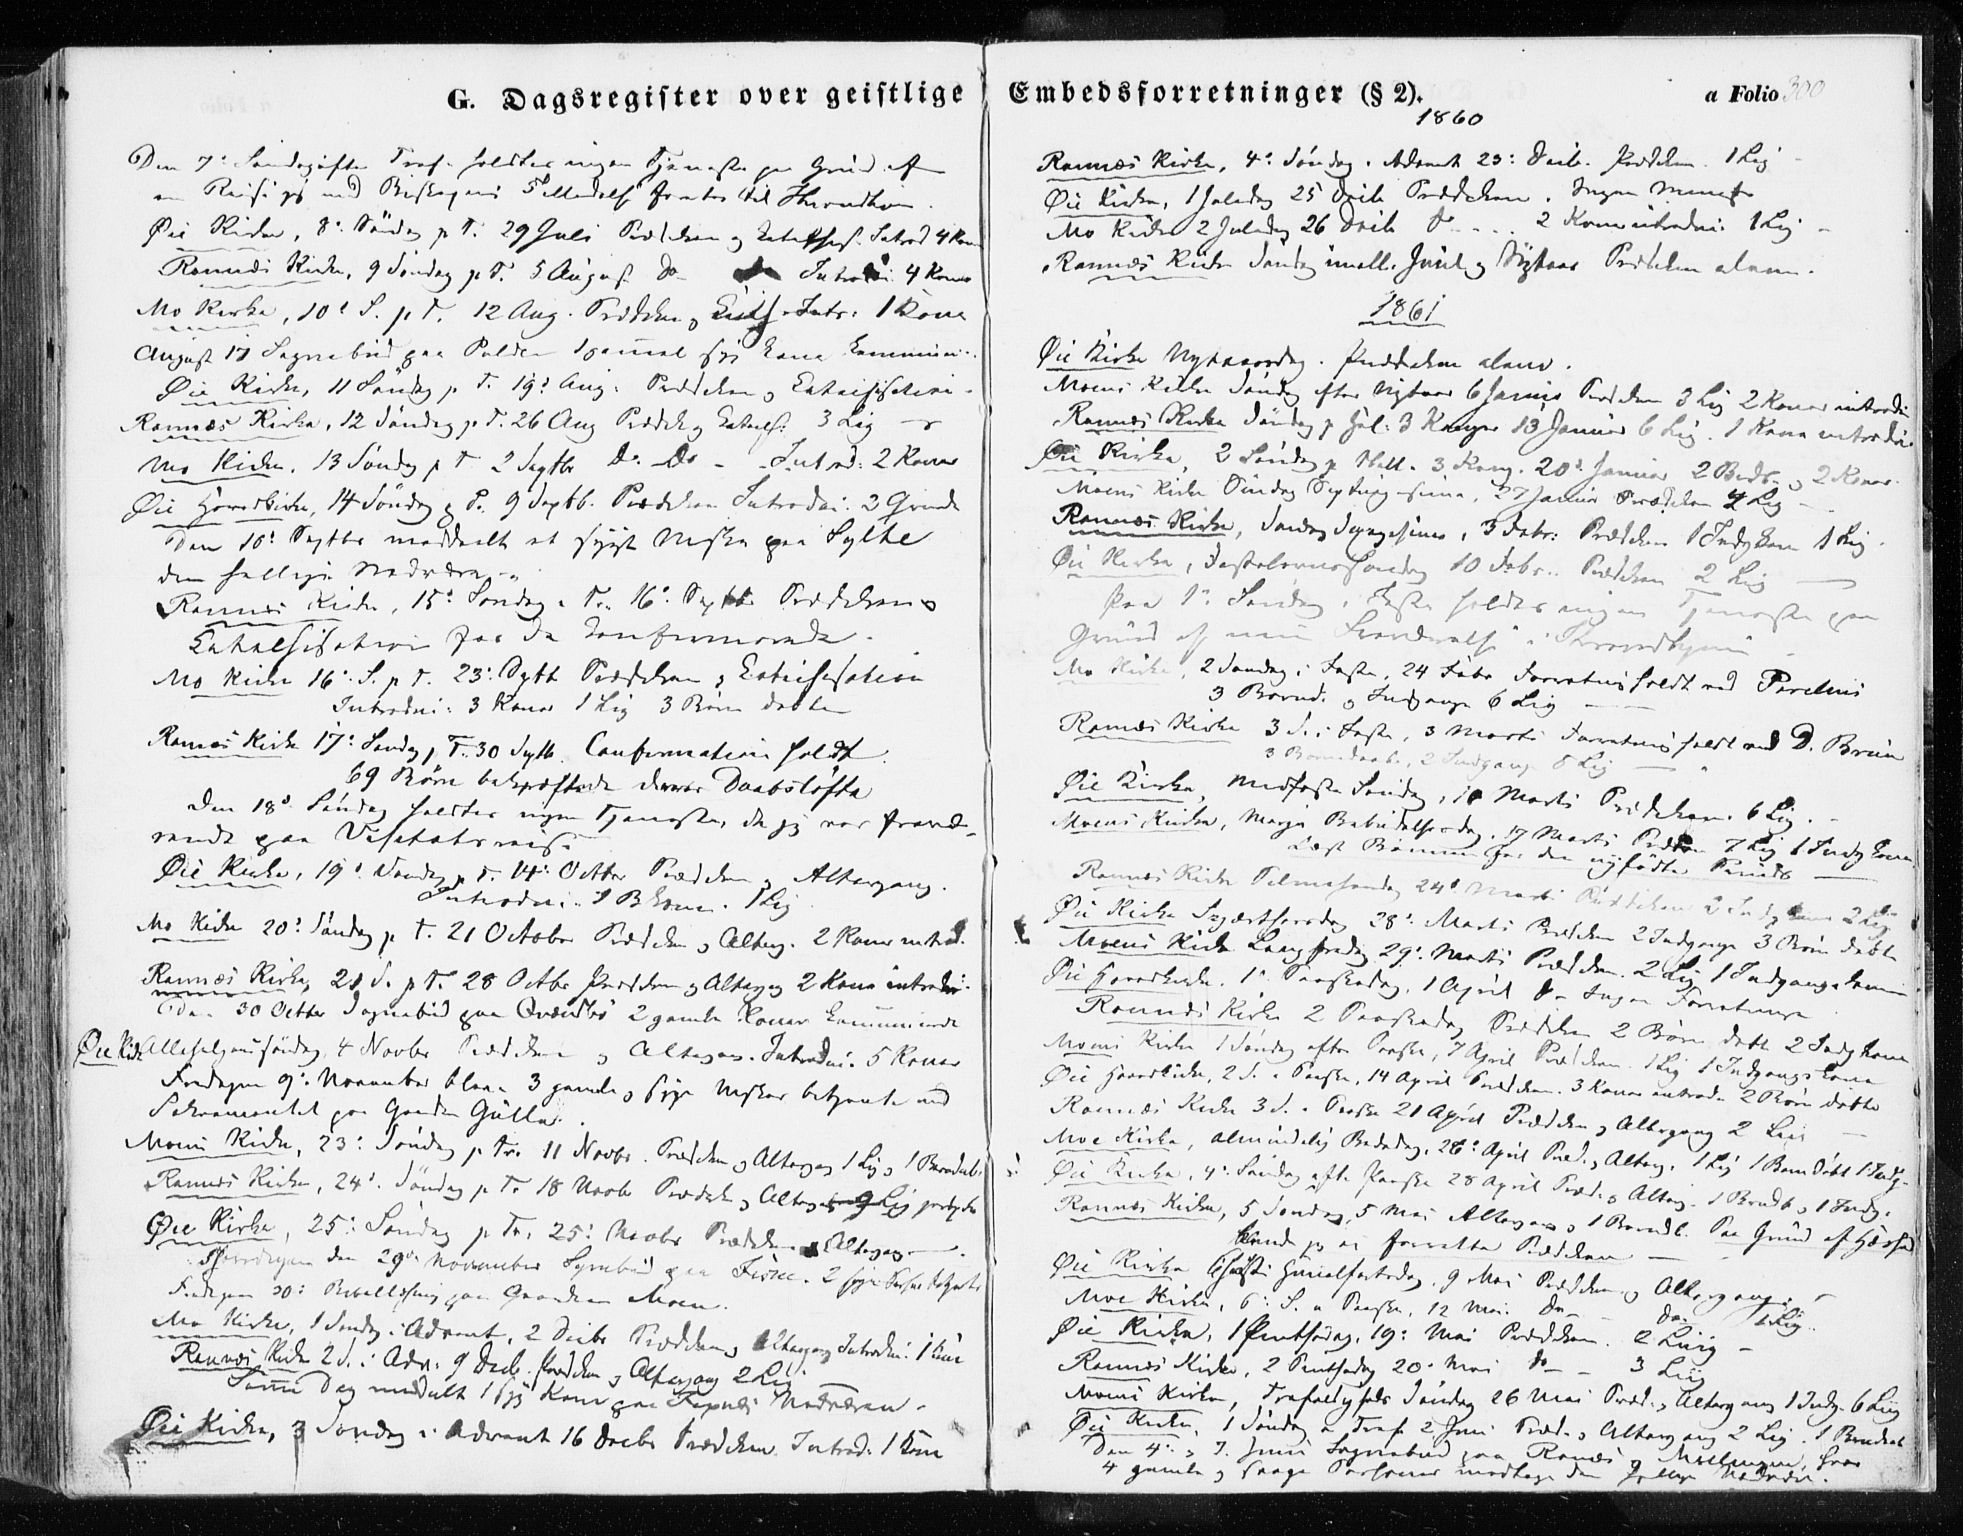 G. Dagsregister over geistlige
Den 7de Søndag efter Tref. holdtes ingen Tjeneste paa Grund af
en Reise med Biskopen til Throndhiem.
Øie Kirke, 8de Søndag p T. 29 Juli Prædiken og Introd 4 Kon
Rannæs Kirke, 9 Søndag p. T. 5 August do Introd: 4 Koner
Mo Kirke, 10d S. p T. 12 Aug. Prædiken og Intr: 1 Kone
August 17 Sognebud paa syg Kone
Øie Kirke, 11 Søndag p T. 19d Aug: Prædiken og Catechisation
Rannæs Kirke, 12 Søndag p. T. 26 Aug Prædik og 3 Lig
Mo Kirke, 13 Søndag p T 2 Septbr Do Do Introd: 2 Koner
Øie Hovedkirke, 14 Søndag p T. 9 Septb. Prædiken Introdu:
Den 10d Septbr meddeelt et sygt Mske paa Sylte
den hellige Nadvere
Rannæs Kirke, 15d Søndag Tr. 16d Septbr Prædiken og
Catechisation for de Confirmerende
Mo Kirke 16d S. p T. 23d Sptb Prædiken og Catechisation
Introdui: 3 Koner 1 Lig 3 Børn døbte
Rannæs Kirke 17d Søndag p T. 30 Sptb. Confirmation holdt.
69 Børn bekræftede deres Daabsløfte
Den 18d Søndag holdtes ingen Tjeneste, da jeg var fravæ-
rende paa Visitatsreise
Øie Kirke, 19d Søndag p T. 14d Octbr Prædiken og Altergang.
Introdui. 1 Lig
Mo Kirke 20d Søndag p T. 21 Octobr Prædiken og Alterg. 2 Koner introd.
Rannæs Kirke, 21 S. p T. 28 Octbr Prædiken og Altergang 2 Kone introdu.
Den 30 Octbr Sognebud paa 2 gamle Koner
Øie Kirke Allehelgenssøndag 4 Novbr Prædiken og Altergan. Introdui. 5 Koner
Fredagen 9d November bleve 3 gamle og syge Msker betjente med
Sakramentet paa Gaarden Gulla.
Moens Kirke, 23d Søndag p Tr. 11 Novbr. Prædiken og Altergang 1 Lig, 1 Barnedaab.
Rannæs Kirke, 24d Søndag p. T. 18 Novbr Prædik og Alterg Lig
Øie Kirke, 25d Søndag p Tr. 25d Novbr Prædiken og Altergang
Torsdagen den 29de November Sognebud paa 2 syge
Fredagen 30d paa Gaarden Moen.
Mo Kirke, 1 Søndag i Advent, 2 Decbr Prædiken og Altergang Introdui: 1 Kone
Rannæs Kirke 2 S. i Adv: 9 Decb. Prædiken og Altergang 2 Lig
Samme Dag meddeelt 1 syg Kone paa Nadveren
Øie Kirke, 3 Søndag i Advent 16 Decbr Prædiken Introd: 1 Kone
Embedsforretninger (§ 2).
a Folio 300
1860
Rannæs Kirke, 4d Søndag i Advent 23d Decb. Prædiken. 1 Lig
Øie Kirke, 1 Juledag 25 Decb Prædiken. Ingen
Mo Kirke 2 Juledag 26 Decb do 2 Koner introdui: 1 Lig
Rannæs Kirke Søndag imell. Juul og Nytaar Prædiken alene.
1861
Øie Kirke Nytaarsdag. Prædiken alene.
Moens Kirke Søndag efter Nytaar 6 Januar Prædiken 3 Lig 2 Koner introdu
Rannæs Kirke Søndag p Hel: 3 Konger 13 Januar 6 Lig. 1 Kone introdui
Øie Kirke, 2 Søndag p Hell. 3 Kong. 20d Januar 2 og 2 Koner.
Moens Kirke Søndag Septuagesima, 27 Januar Prædiken 4 Lig
Rannæs Kirke, Søndag Sexagesima, 3 Febr: Prædiken 1 Indg Kone 1 Lig
Øie Kirke, Fastelavnssøndag 10 Febr. Prædiken 2 Lig
Paa 1d Søndag i Faste holdes ingen Tjeneste paa
Grund af min Fraværelse i Throndhjem
Mo Kirke, 2 Søndag i Faste, 24 Febr Forretning holdt ved Parelius
3 Barnd. og Indgange 6 Lig
Rannæs Kirke 3 S. i Faste, 3 Marts Forretning holdt ved D. Bruun
3 Barnedaab, 2 Indgange 8 Lig
Øie Kirke, Midfaste Søndag, 10 Marts Prædiken. 6 Lig.
Moens Kirke, Mariæ Bebudelsesdag, 17 Marts Præd 7 Lig 1 Indg Kone
Læst Bønnen for den nyfødte
Rannæs Kirke Palmesøndag 24d Marts Prædiken 2 Indg Kone 2 Lig
Øie Kirke Skjærthorsdag 28d Marts Prædiken 2 Indgange 3 Børn døbte
Moens Kirke Langfredag 29d Marts Prædiken. 2 Lig 1 Indgangskone
Øie Hovedkirke, 1d Paaskedag, 1 April do Ingen Forretninger
Rannæs Kirke 2 Paaskedag Prædiken 2 Børn døbte 2 Indg Kone
Moens Kirke 1 Søndag efter Paaske, 7 April Prædiken. 1 Lig 1 Indgangskone
Øie Hovedkirke, 2 S. e Paaske, 14 April Prædiken. 3 Koner introdu 2 Børn døbte
Rannæs Kirke 3 S. e Paaske 21 April Prædiken og Altergang 2 Liig
Moe Kirke, almindelig Bededag, 26d April Præd. og Alterg. 1 Lig 1 Barn døbt 1 Indg.
Øie Kirke, 4d Søndag efter Paaske 28 April Præd. og Alterg. 1 Barndb og 1 Indg.
Rannæs Kirke, 5 Søndag, 5 Mai Altergang og 1 Barndb. Paa Grund af Hæshed
kunde jeg ei forrette Prædiken
Øie Kirke Christi Himmelfartsdag, 9 Mai Prædiken og Altergang.
Moe Kirke, 6d S. e Paaske, 12 Mai. Do do 1 Lig.
Øie Kirke, 1 Pintsedag, 19d Mai Prædiken. 2 Liig
Rannæs Kirke, 2 Pintsedag 20d Mai do 3 Liig
Moens Kirke, Trefoldigheds Søndag 26 Mai Præd. og Altergang 1 Indg. 6 Liig
Øie Kirke, 1 Søndag e Tref. 2 Juni Præd. og Altergang 2 Lig. 1 Barnedaab
Den 4d og 7. Juni Sognebud paa Rannæs og hvor
4 gamle og svage Personer modtoge den hellige Nadvere.